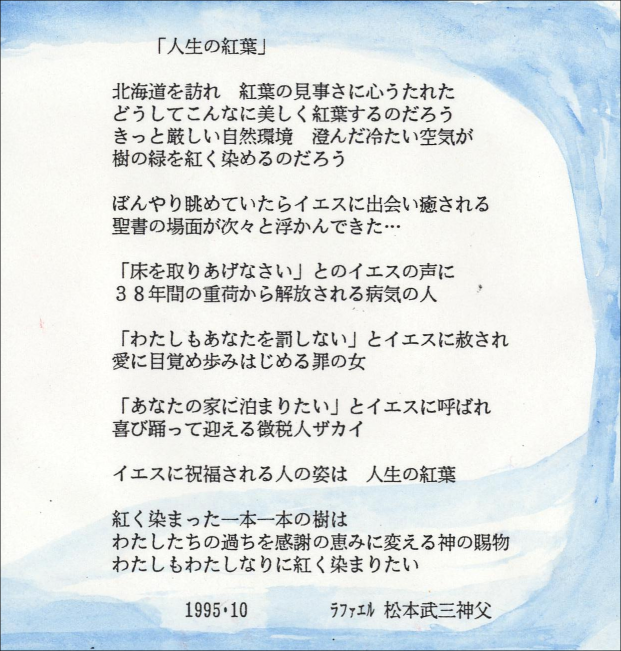 「人生の紅葉」
北海道を訪れ　紅葉の見事さに心うたれた
どうしてこんなに美しく紅葉するのだろう
きっと厳しい自然環境　澄んだ冷たい空気が
樹の緑を紅く染めるのだろう
ぼんやり眺めていたらイエスに出会い癒される
聖書の場面が次々と浮かんできた…
「床を取りあげなさい」とのイエスの声に
３８年間の重荷から解放される病気の人
「わたしもあなたを罰しない」とイエスに赦され
愛に目覚め歩みはじめる罪の女
「あなたの家に泊まりたい」とイエスに呼ばれ
喜び踊って迎える徴税人ザカイ
イエスに祝福される人の姿は　人生の紅葉
紅く染まった一本一本の樹は
わたしたちの過ちを感謝の恵みに変える神の賜物
わたしもわたしなりに紅く染まりたい
1995・10　　ﾗﾌｧｴﾙ 松本武三神父